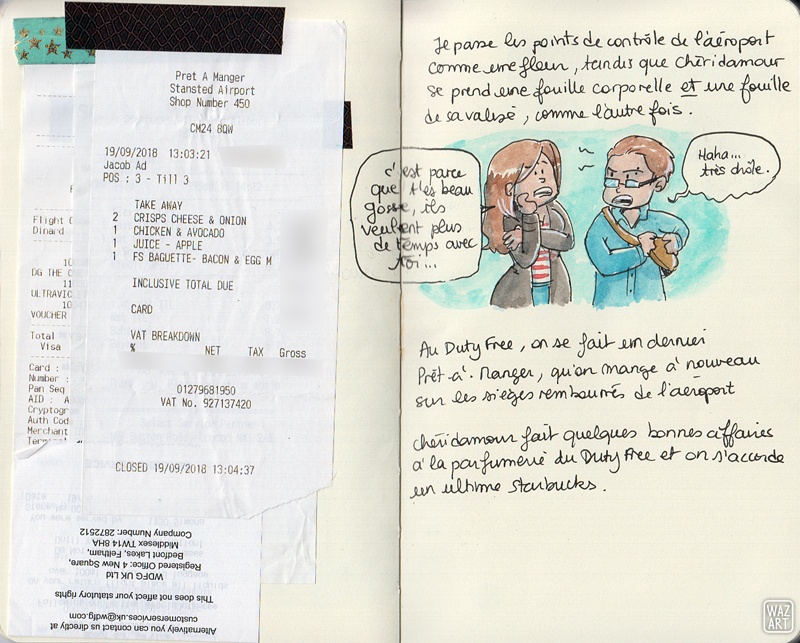 Pret A Manger
Stansted Airport
Shop Number 450
CM24 8QW
19/09/2018 13:03:21
Jacob Ad
POS : 3 - Till 3
TAKE AWAY
2 CRISPS CHEESE & ONION
1 CHICKEN & AVOCADO
1 JUICE - APPLE
1 FS BAGUETTE- BACON & EGG M
INCLUSIVE TOTAL DUE
CARD
VAT BREAKDOWN
% NET TAX Gross
01279681950
VAT No. 927137420
CLOSED 19/09/2018 13:04:37
Flight
Dinard
DG THE
ULTRAVIC
VOUCHER
Total
Visa
Card :
Number :
Pan Seq
AID : A
Cryptogr
Auth Cod
Merchant
Alternatively you can contact us directly at
customerservices.uk@wdfg.com
This does not affect your statutory rights
WDFG UK Ltd
Registered Office: 4 New Square,
Bedfont Lakes, Feltham,
Middlesex TW14 8HA
Company Number: 2872512
Je passe les points de contrôle de l'aéroport
comme une fleur, tandis que chéridamour
se prend une fouille corporelle et une fouille
de sa valise, comme l'autre fois.
c'est parce
que t'es beau
gosse, ils
veulent plus
de temps avec
toi...
Haha...
très drôle.
Au Duty Free, on se fait un dernier
Prêt-à-Manger, qu'on mange à nouveau
sur les sièges rembourrés de l'aéroport
chéridamour fait quelques bonnes affaires
à la parfumerie du Duty Free et on s'accorde
un ultime starbucks.
WAZ
ART